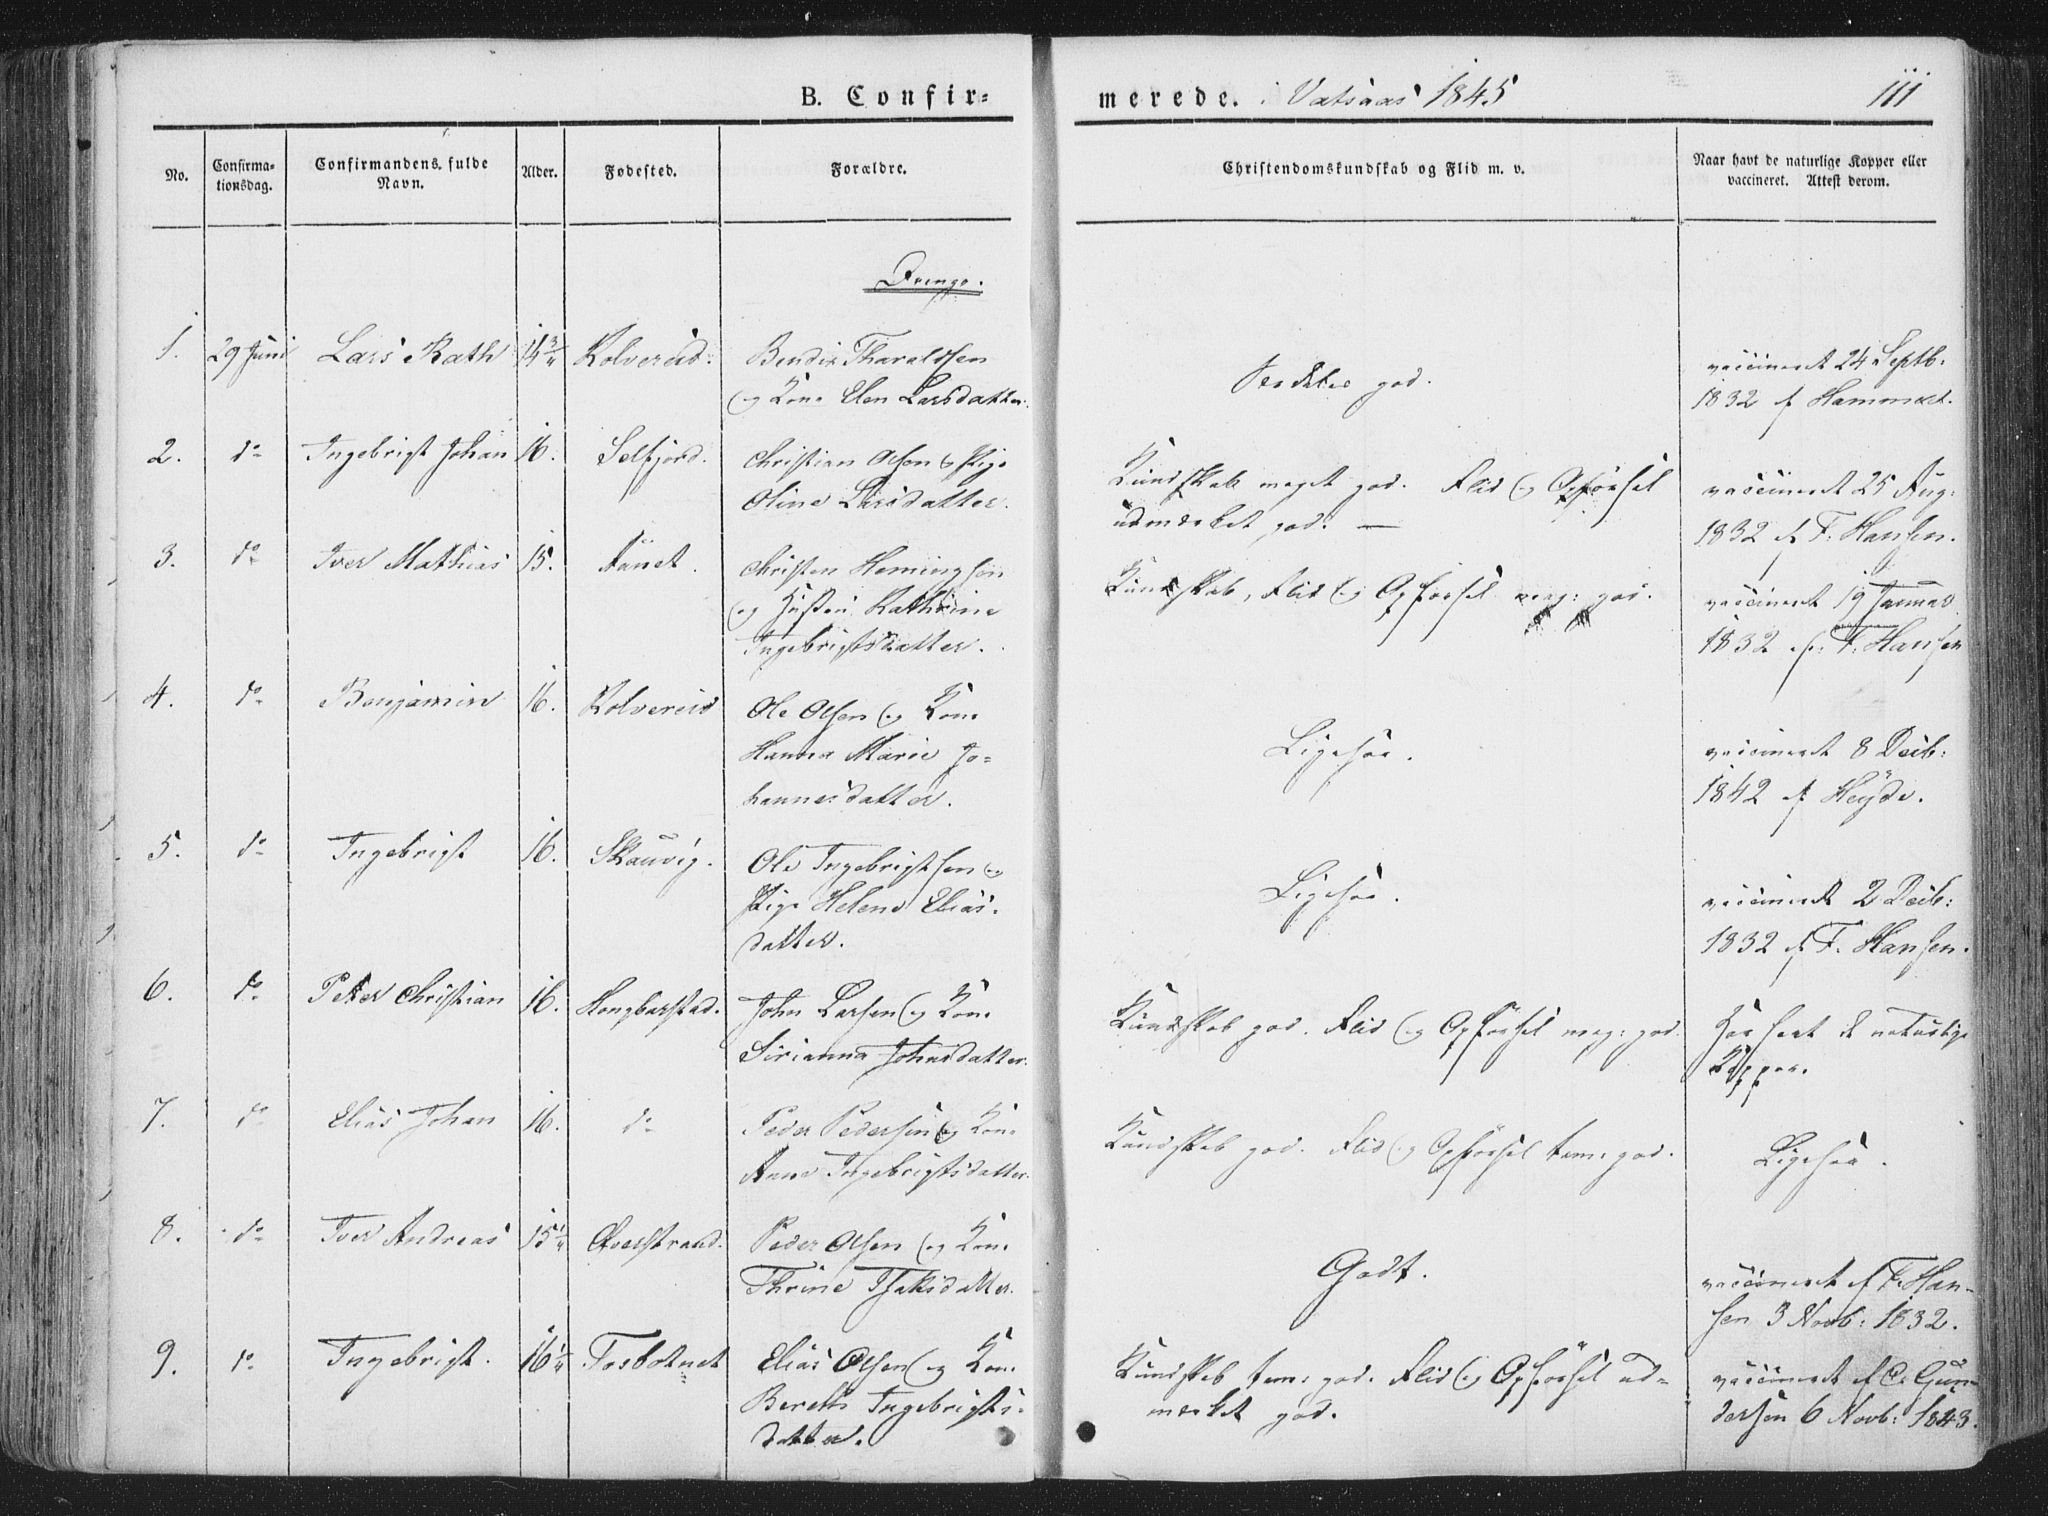 B. Confir-
merede. i Vatsaas 1845
111
No.
Confirma-
tionsdag.
Confirmandens fulde
Navn.
Alder.
Fødested.
Forældre.
Christendomskundskab og Flid m. v.
Naar havt de naturlige Kopper eller
vaccineret. Attest derom.
Drenge.
1. 29 Juni Lars Rath 14 3/4 Kolvereid. Bendix Tharaldsen
og Kone Elen Larsdatter.
Serdeles god.
vaccineret 24 Septb:
1832 af Hammer.
2. do Ingebrigt Johan 16. Selfjord. Christian Olsen og Pige
Oline Larsdatter.
Kundskab meget god. Flid og Opførsel
udmærket god. —
vaccineret 25 Aug:
1832 af F. Hansen.
3. do Iver Mathias 15. Christen Hemingsen
og Hustru Kathrine
Ingebrigtsdatter.
Kundskab, Flid og Opførsel meg: god.
vaccineret 19 Januar
1832 af F. Hansen
4. do Benjamin 16. Kolvereid Ole Olsen og Kone
Hanna Marie Jo-
hannesdatter.
Ligesaa.
vaccineret 8 Decb:
1842 af Heyde.
5. do Ingebrigt 16. Skauvig. Ole Ingebrigtsen og
Pige Helene Elias-
datter.
Ligesaa.
vaccineret 2 Decb:
1832 af F. Hansen.
6. do Peter Christian 16. John Larsen og Kone
Sirianna Johnsdatter.
Kundskab god. Flid og Opførsel meg: god.
Har havt de naturlige
Kopper.
7. do Elias Johan 16. do Peder Pedersen og Kone
Anne Ingebrigtsdatter.
Kundskab god. Flid og Opførsel tem: god.
Ligesaa.
8. do Iver Andreas 15 1/4 Qverstrand. Peder Olsen og Kone
Thrine Isaksdatter.
Godt.
vaccineret af F. Han-
sen 3 Novb: 1832.
9. do Ingebrigt. 16 1/4 Tosbotnet Elias Olsen og Kone
Bereth Ingebrigts-
datter.
Kundskab tem: god. Flid og Opførsel ud-
mærket god.
vaccineret af C. Gun-
dersen 6 Novb: 1843.